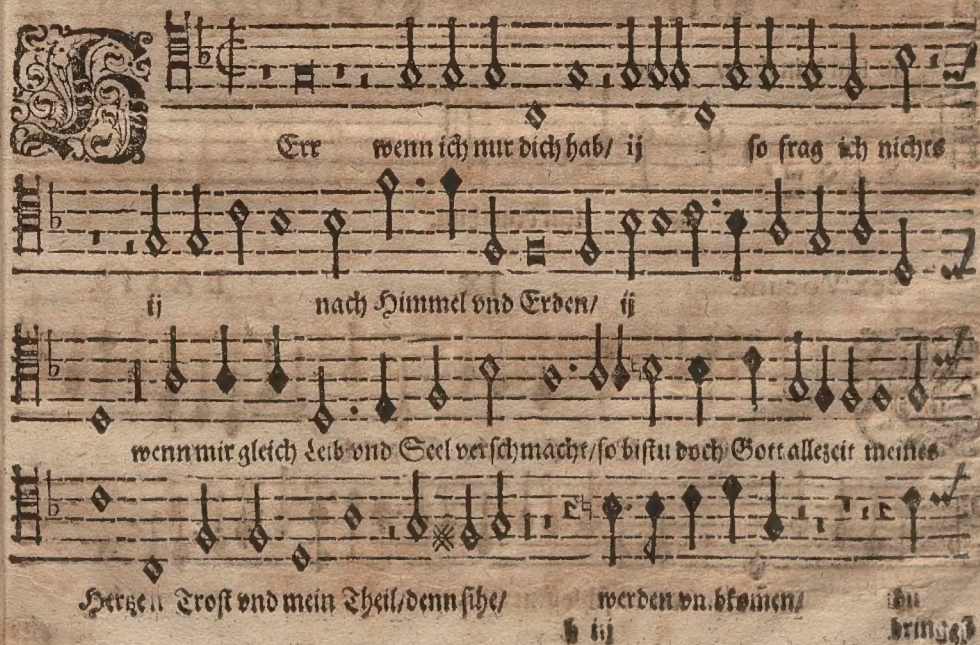 HErr wenn ich nur dich hab/ ij so frag ich nichts
ij nach Himmel vnd Erden/ ij
wenn mir gleich Leib vnd Seel verschmacht/ so bistu doch Gott allezeit meines
Hertzen Trost vnd mein Theil/ denn sihe/ werden vmbkom̃en/ du
h iij bringest